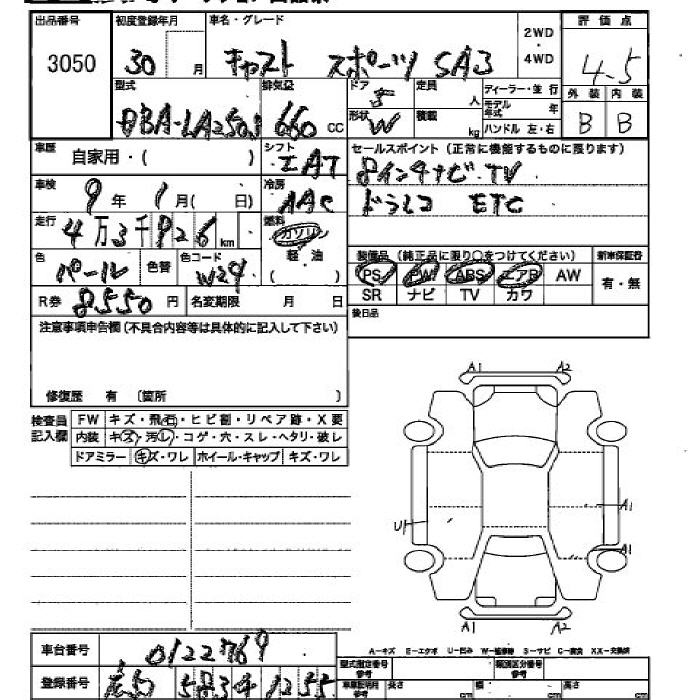 出品番号 初度登録年月 車名・グレード 2WD・4WD 評価点
3050 30 月 キャスト スポーツ SA3 4.5
型式 排気量 ドア 5 定員 人 ディーラー・並行 外装 内装
DBA-LA250S 660 cc 形状 W 積載 kg モデル年式 年 B B
ハンドル 左・右
車歴 自家用・( ) シフト IAT セールスポイント (正常に機能するものに限ります)
8インチナビ・TV
車検 9年 1月( 日) 冷房 AAC ドラレコ ETC
走行 4万3千926km 燃料 ガソリン
軽油
( )
色 パール 色替 色コード W24 装備品 (純正品に限り○をつけてください) 新車保証書
PS PW ABS エアB AW 有・無
R券 8550円 名変期限 月 日 SR ナビ TV カワ
注意事項申告欄(不具合内容等は具体的に記入して下さい) 後日品
修復歴 有 〔箇所 〕
検査員記入欄 FW キズ・飛石・ヒビ割・リペア跡・X要
内装 キズ・汚レ・コゲ・穴・スレ・ヘタリ・破レ
ドアミラー キズ・ワレ ホイール・キャップ キズ・ワレ
A1 A2
U1 A1
A1
A1 A2
A-キズ E-エクボ U-凹み W-補修跡 S-サビ C-腐食 XX-交換済
車台番号 0122769
型式指定番号 類別区分番号
登録番号 583 1255
車庫証明用参考 長さ cm 幅 cm 高さ cm